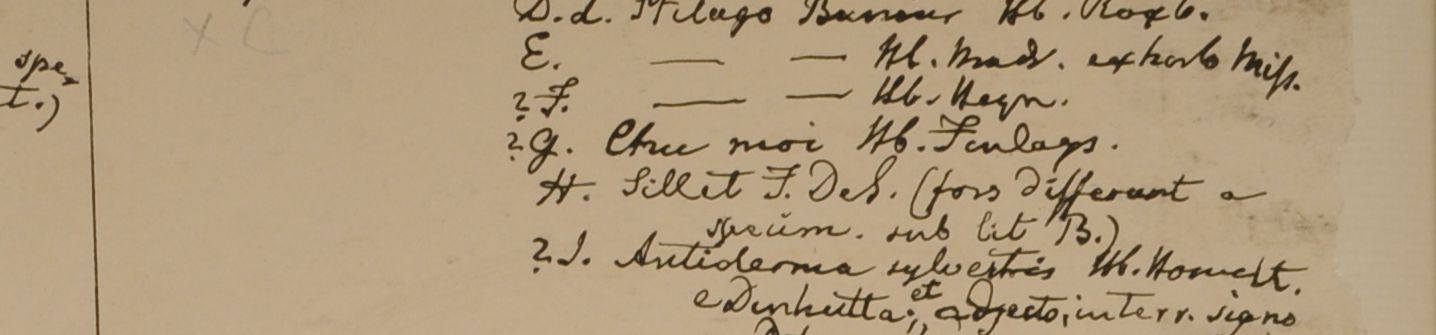 spe
t.)
D.d. Stilago Bunius Hb. Roxb.
E. — — Hb. Madr. ex horto Miss.
? F. — — Hb. Heyn.
? G. Chu moi Hb. Finlays.
H. Sillet F. DeS. (fors different a
specim. sub lit B.)
? I. Antidesma sylvestris Hb.
e et adjecto, interr. signo